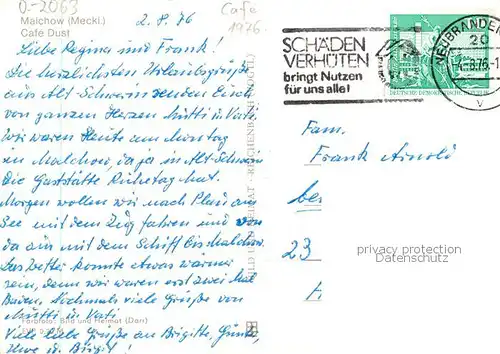 0-2063
Malchow (Meckl.)
Café Dust
2.8.76
Café
1976.
Liebe Regina und Frank!
Die herzlichsten Urlaubsgrüße
aus Alt-Schwerin senden Euch
von ganzen Herzen Mutti u. Vati.
Wir waren Heute am Montag
in Malchow, da ja in Alt-Schwerin
Die Gaststätte Ruhetag hat.
Morgen wollen wir nach Plau am
See mit dem Zug fahren und von
da aus mit dem Schiff bis Malchow.
Das Wetter könnte etwas wärmer
sein, denn wir waren erst zwei Mal
Baden. Nochmals viele Grüße von
Mutti u. Vati
Viele liebe Grüße an Brigitte, Günter,
Uwe u. Birgit!
Farbfoto: Bild und Heimat (Darr)
SCHÄDEN
VERHÜTEN
bringt Nutzen
für uns alle!
NEUBRANDEN
20
-4.8.76-1
v
DEUTSCHE DEMOKRATISCHE REPUBLIK
Fam.
Frank Arnold
be
23
privacy protection
VERDRAENGT.COM